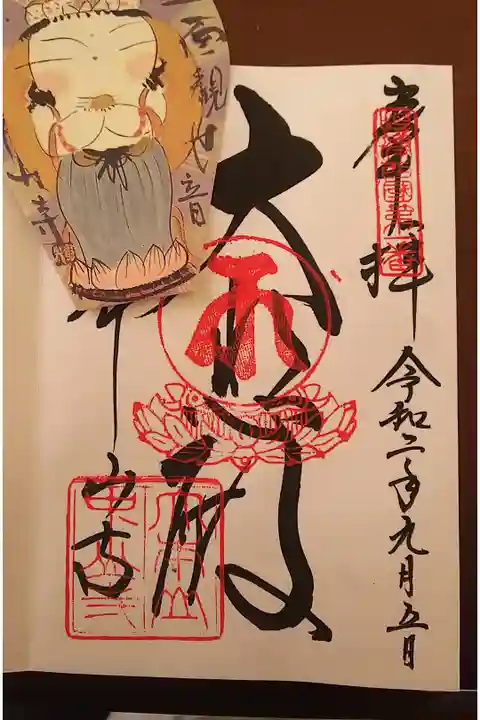 奉拝
令和二年九月五日
大悲殿
中山寺
大本山
中山寺
面観世音
山寺